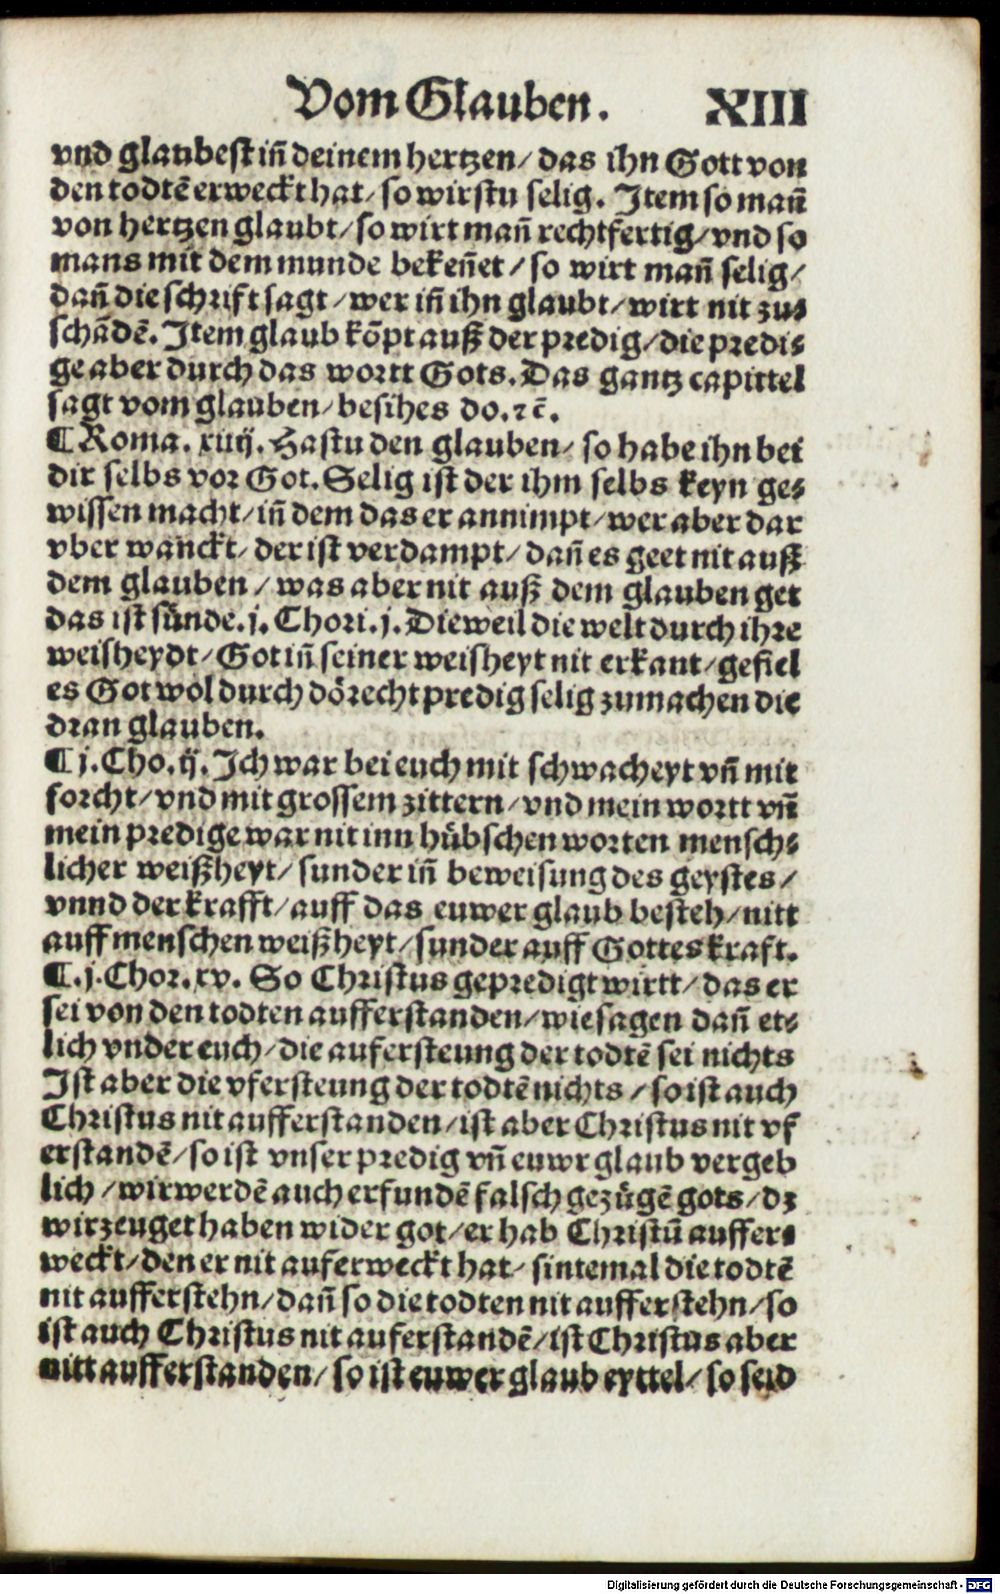 Vom Glauben. XIII
vnd glaubest iñ deinem hertzen/ das ihn Gott von
den todtē erweckt hat/ so wirstu selig. Item so mañ
von hertzen glaubt/ so wirt mañ rechtfertig/ vnd so
mans mit dem munde bekeñet/ so wirt mañ selig/
dañ die schrift sagt/ wer iñ ihn glaubt/ wirt nit zu⸗
schādē. Item glaub kōpt auß der predig/ die predi⸗
ge aber durch das wortt Gots. Das gantz capittel
sagt vom glauben/ besihes do. ⁊c̄.
¶ Roma. xiiij. Hastu den glauben/ so habe ihn bei
dir selbs vor Got. Selig ist der ihm selbs keyn ge⸗
wissen macht/ iñ dem das er annimpt/ wer aber dar
vber wanckt/ der ist verdampt/ dañ es geet nit auß
dem glauben/ was aber nit auß dem glauben get
das ist sünde. j. Chori. j. Dieweil die welt durch ihre
weisheydt/ Got iñ seiner weisheyt nit erkant/ gefiel
es Got wol durch dörecht predig selig zumachen die
dran glauben.
¶ j. Cho. ij. Ich war bei euch mit schwacheyt vñ mit
forcht/ vnd mit grossem zittern/ vnd mein wortt vñ
mein predige war nit inn hübschen worten mensch⸗
licher weißheyt/ sunder iñ beweisung des geystes/
vnnd der krafft/ auff das euwer glaub besteh/ nitt
auff menschen weißheyt/ sunder auff Gottes kraft.
¶. j. Chor. xv. So Christus gepredigt wirtt/ das er
sei von den todten aufferstanden/ wie sagen dañ et⸗
lich vnder euch/ die aufersteung der todtē sei nichts
Ist aber die vfersteung der todtē nichts/ so ist auch
Christus nit aufferstanden/ ist aber Christus nit vf
erstandē/ so ist vnser predig vñ euwr glaub vergeb
lich/ wir werdē auch erfundē falsch gezügē gots/ dz
wir zeuget haben wider got/ er hab Christū auffer⸗
weckt/ den er nit auferweckt hat/ sintemal die todtē
nit aufferstehn/ dañ so die todten nit aufferstehn/ so
ist auch Christus nit auferstandē/ ist Christus aber
nitt aufferstanden/ so ist euwer glaub eyttel/ so seid
Digitalisierung gefördert durch die Deutsche Forschungsgemeinschaft - DFG